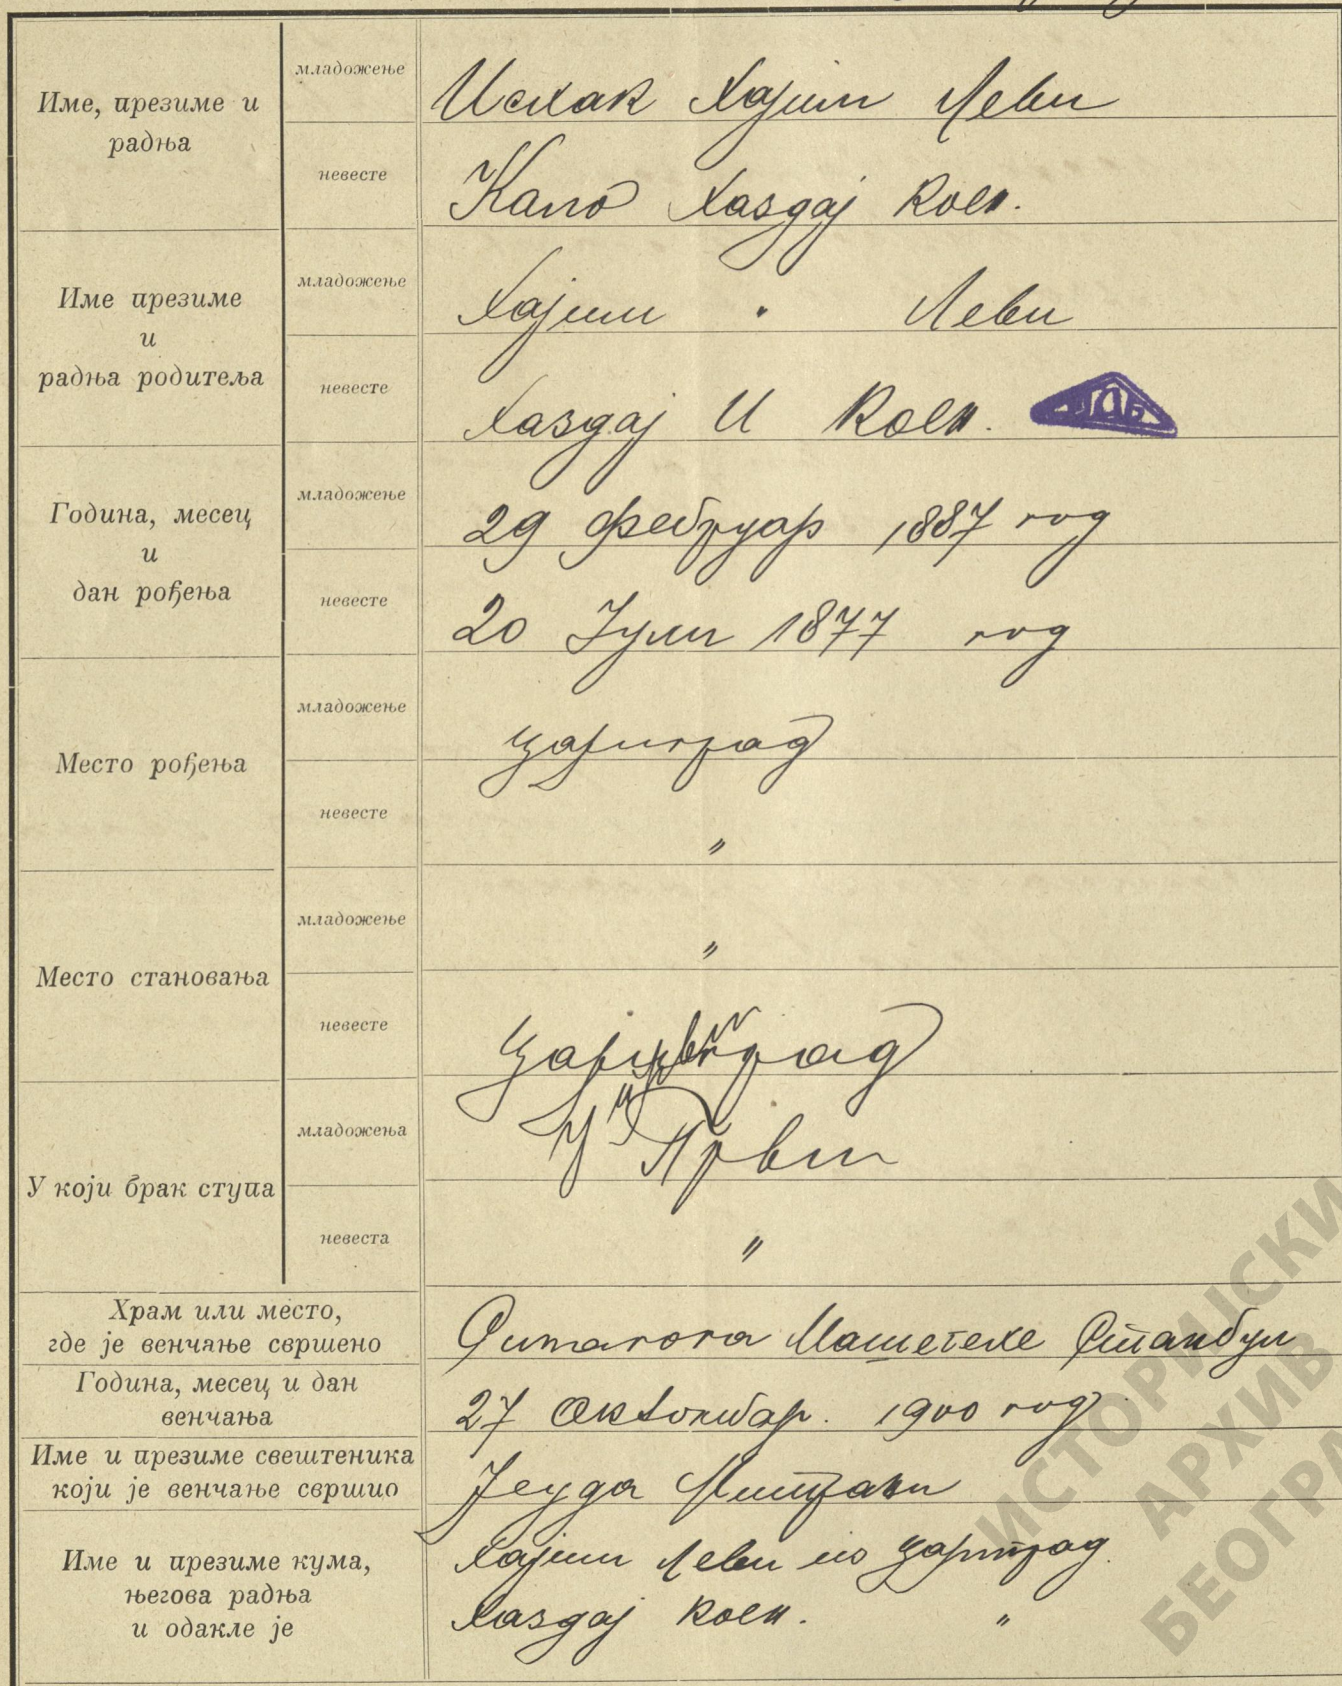 Име, презиме и
радња
младожење
Исхак Хајим Леви
невесте
Кало Хаздај Коен.
Име презиме
и
радња родитеља
младожење
Хајим " Леви
невесте
Хаздај И Коен.
Година, месец
и
дан рођења
младожење
29 фебруар 1887 год
невесте
20 Јули 1877 год
Место рођења
младожење
Цариград
невесте
"
Место становања
младожење
"
невесте
Цариград
У који брак ступа
младожења
У Први
невеста
"
Храм или место,
где је венчање свршено
Синагога Стамбул
Година, месец и дан
венчања
27 Октомбар. 1900 год.
Име и презиме свештеника
који је венчање свршио
Јеуда Митрани
Име и презиме кума,
његова радња
и одакле је
Хајим Леви из Цариград.
Хаздај Коен. "
ИСТОРИЈСКИ
АРХИВ
БЕОГРА